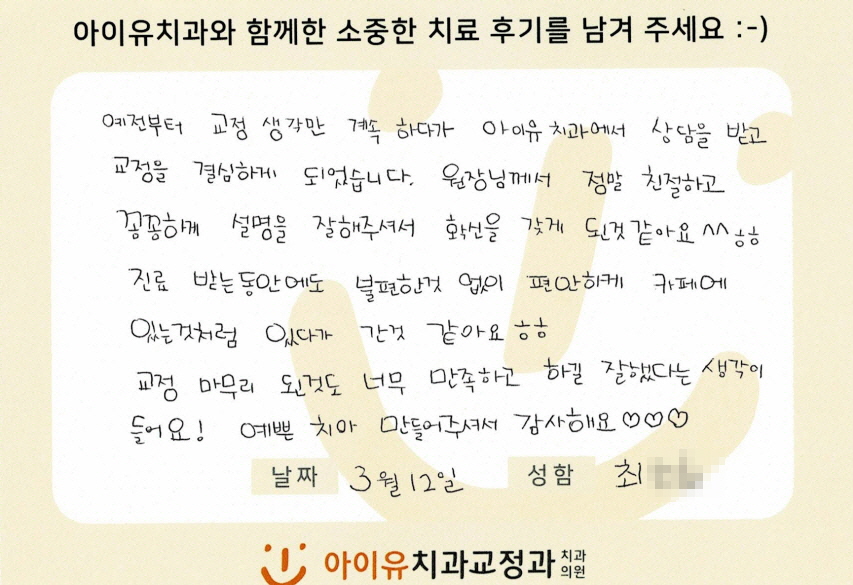 아이유치과와 함께한 소중한 치료 후기를 남겨 주세요 :-)
예전부터 교정 생각만 계속 하다가 아이유 치과에서 상담을 받고
교정을 결심하게 되었습니다. 원장님께서 정말 친절하고
꼼꼼하게 설명을 잘해주셔서 확신을 갖게 된것 같아요 ^^ ㅎㅎ
진료 받는동안에도 불편한것 없이 편안하게 카페에
있는것처럼 있다가 간것 같아요 ㅎㅎ
교정 마무리 된것도 너무 만족하고 하길 잘했다는 생각이
들어요! 예쁜 치아 만들어주셔서 감사해요 ♡♡♡
날짜 3월 12일 성함 최
아이유치과교정과 치과의원